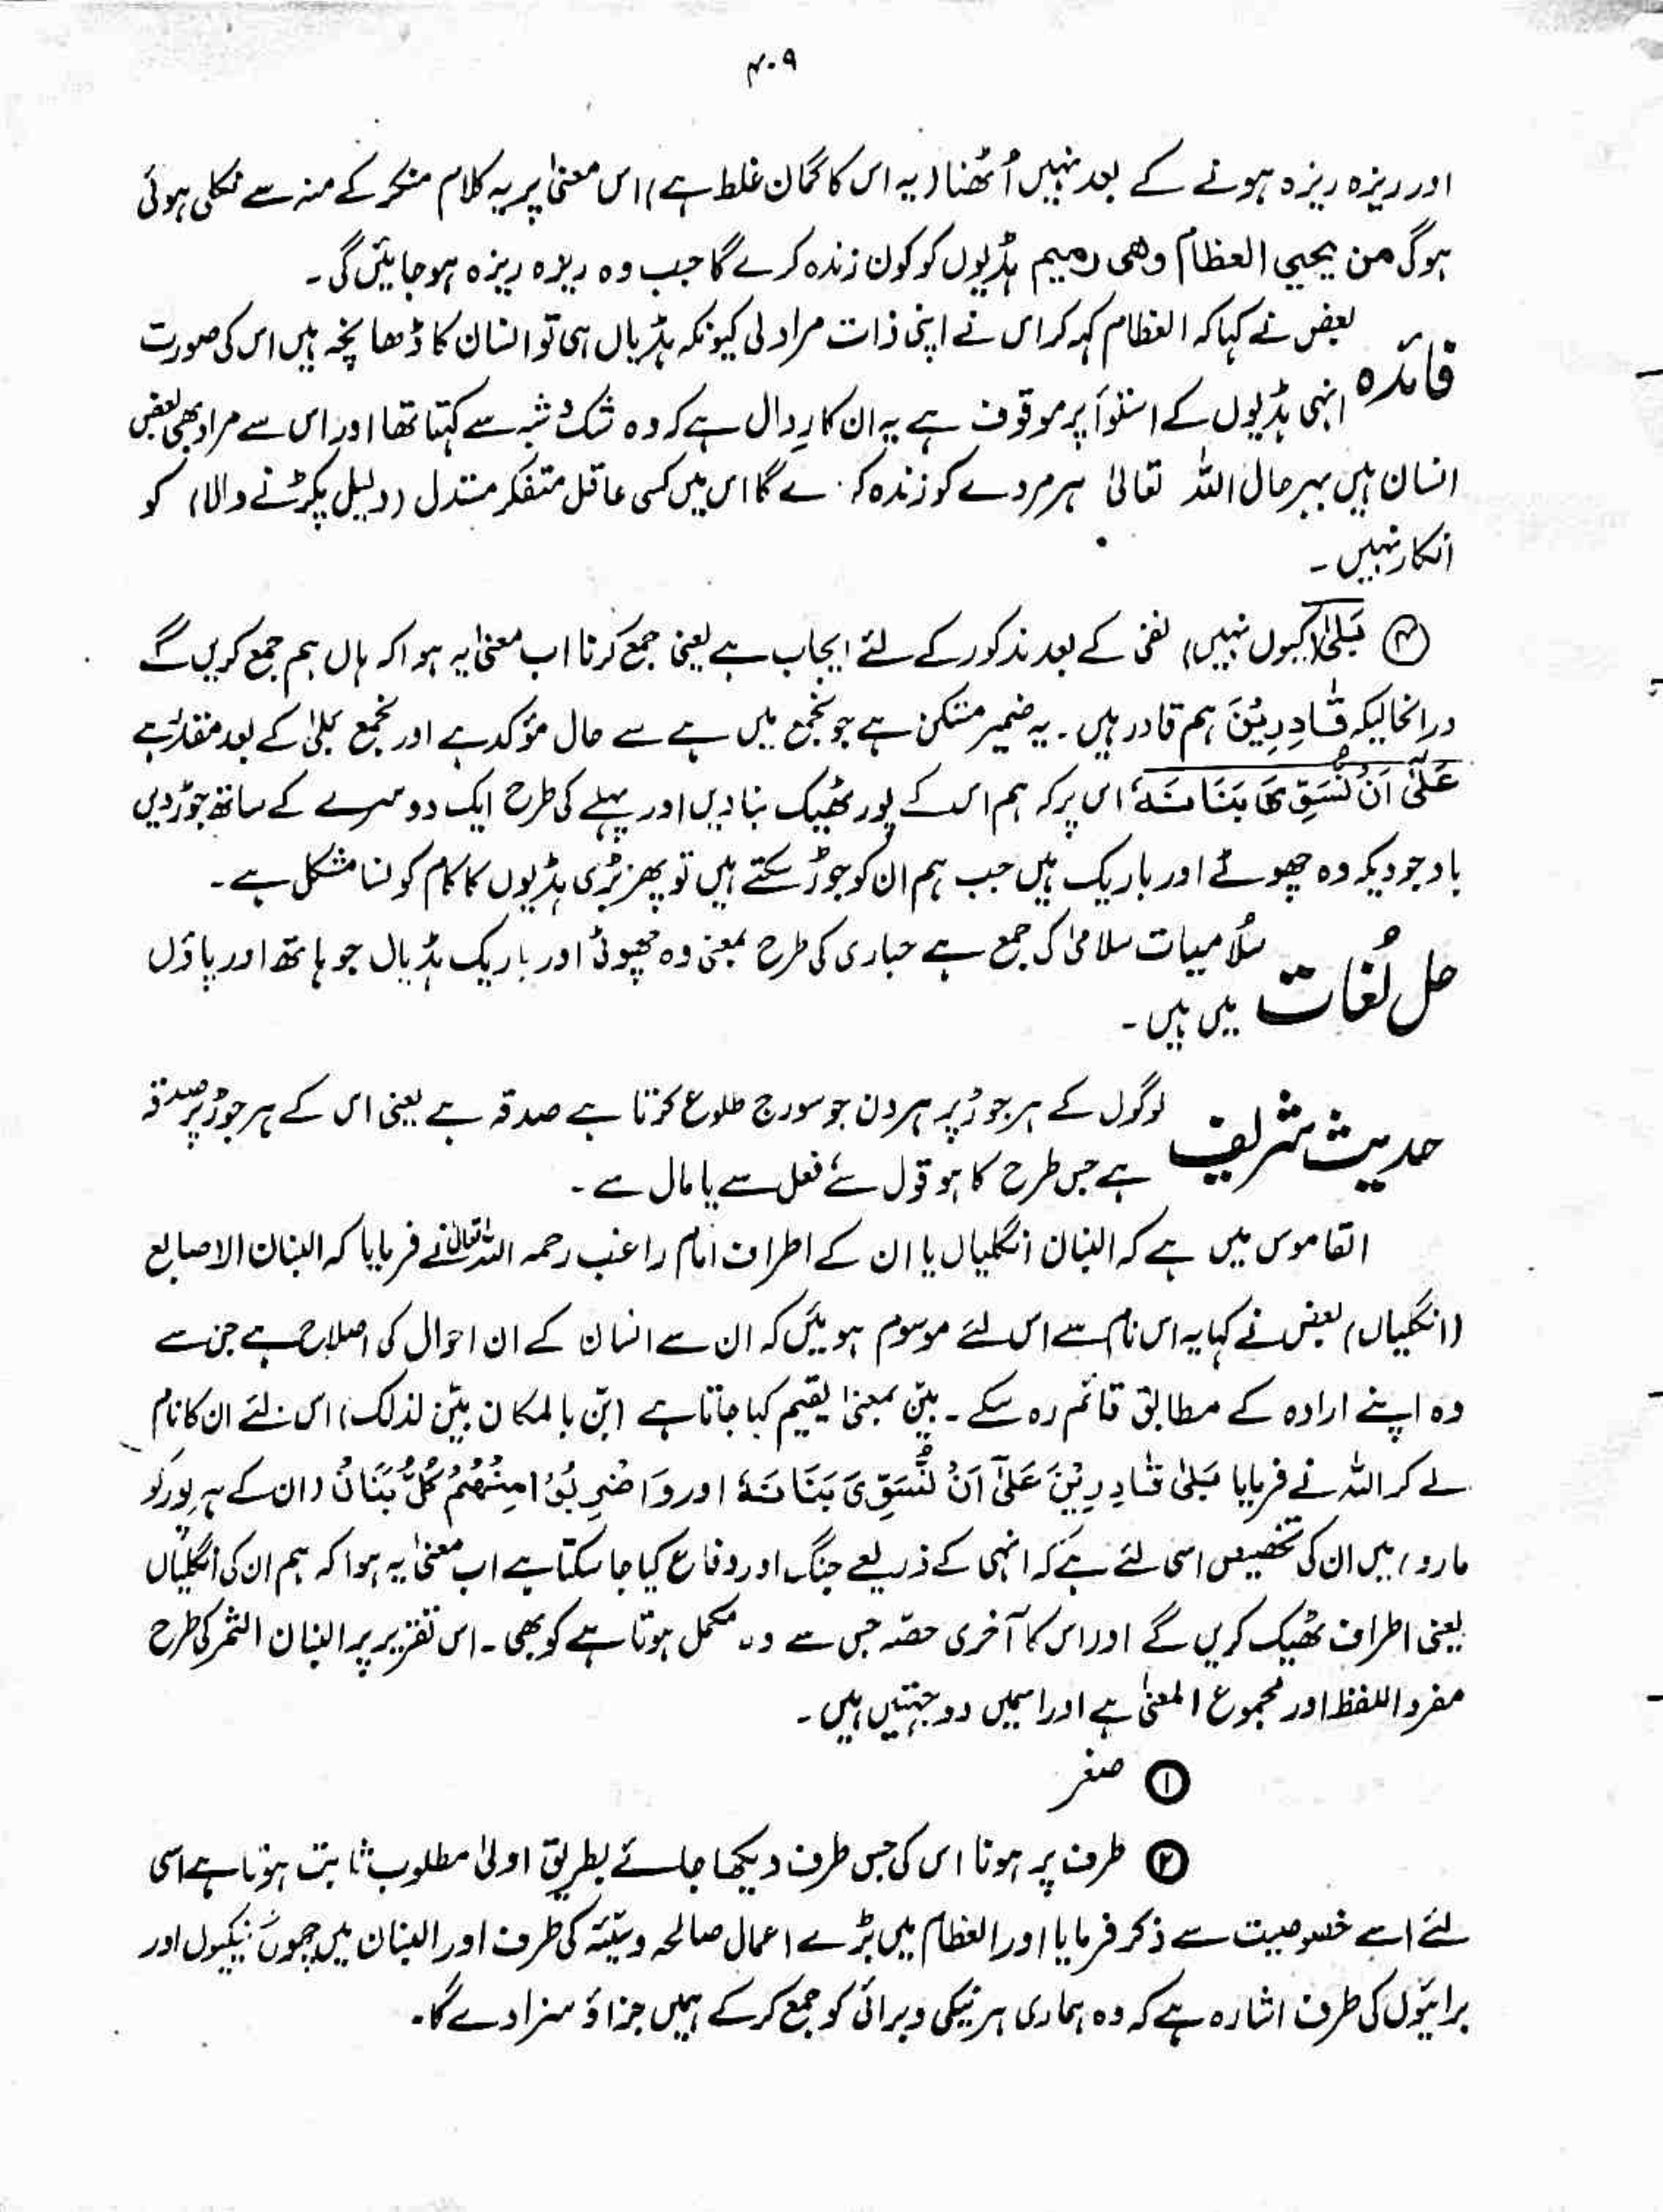 ۴۰۹
اور ریزہ ریزہ ہونے کے بعد نہیں اُٹھنا (یہ اس کا گمان غلط ہے) اس معنیٰ پر یہ کلام منکر کے منہ سے نکلی ہوئی
ہوگی من یحیی العظام وھی رمیم ہڈیوں کو کون زندہ کرے گا جب وہ ریزہ ریزہ ہو جائیں گی۔
فائدہ بعض نے کہا کہ العظام کہہ کر اس نے اپنی ذات مراد لی کیونکہ ہڈیاں ہی تو انسان کا ڈھانچہ ہیں اس کی صورت
انہی ہڈیوں کے استوأ پر موقوف ہے یہ ان کا رد دال ہے کہ وہ شک و شبہ سے کہتا تھا اور اس سے مراد بھی بعض
انسان ہیں بہرحال اللہ تعالیٰ ہر مردے کو زندہ کرے گا اس میں کسی عاقل متفکر مستدل (دلیل پکڑنے والا) کو
انکار نہیں۔
④ بَلیٰ (کیوں نہیں) نفی کے بعد مذکور کے لئے ایجاب ہے یعنی جمع کرنا اب معنیٰ یہ ہوا کہ ہاں ہم جمع کریں گے
درانحالیکہ قٰادِرِیْنَ ہم قادر ہیں۔ یہ ضمیر متکن ہے جو نجمع میں ہے سے حال مؤکد ہے اور نجمع بلیٰ کے بعد مقدر ہے
عَلٰٓی اَنْ نُّسَوِّیَ بَنَانَہٗ اس پر کہ ہم اس کے پور ٹھیک بنا دیں اور پہلے کی طرح ایک دوسرے کے ساتھ جوڑ دیں
باوجودیکہ وہ چھوٹے اور باریک ہیں جب ہم ان کو جوڑ سکتے ہیں تو پھر بڑی ہڈیوں کا کام کونسا مشکل ہے۔
حل لُغات سُلامیات سلامیٰ کی جمع ہے حباری کی طرح بمعنی وہ چھوٹی اور باریک ہڈیاں جو ہاتھ اور پاؤں
میں ہیں۔
حدیث شریف لوگوں کے ہر جوڑ پر ہر دن جو سورج طلوع کرتا ہے صدقہ ہے یعنی اس کے ہر جوڑ پر صدقہ
ہے جس طرح کا ہو قول سے فعل سے یا مال سے۔
القاموس میں ہے کہ البنان انگلیاں یا ان کے اطراف امام راغب رحمہ اللہ تعالیٰ نے فرمایا کہ البنان الاصابع
(انگلیاں) بعض نے کہا یہ اس نام سے اس لئے موسوم ہوئیں کہ ان سے انسان کے ان احوال کی اصلاح ہے جن سے
وہ اپنے ارادہ کے مطابق قائم رہ سکے۔ یبنّ بمعنیٰ یقیم کہا جاتا ہے (ابن بالمکان یبّن لذلک) اس لئے ان کا نام
لے کر اللہ نے فرمایا بَلیٰ قٰادِرِیْنَ عَلٰٓی اَنْ نُّسَوِّیَ بَنَانَہٗ اور وَاضْرِبُوْا مِنْھُمْ کُلَّ بَنَانٍ (ان کے ہر پور کو
مارو) میں ان کی تخصیص اسی لئے ہے کہ انہی کے ذریعے جنگ اور دفاع کیا جا سکتا ہے اب معنیٰ یہ ہوا کہ ہم ان کی انگلیاں
یعنی اطراف ٹھیک کریں گے اور اس کا آخری حصّہ جس سے وہ مکمل ہوتا ہے کو بھی۔ اس تقریر پر البنان الثمر کی طرح
مفرد اللفظ اور مجموع المعنیٰ ہے اور اسمیں دو جہتیں ہیں۔
① صغر
② طرف پر ہونا اس کی جس طرف دیکھا جائے بطریق اولیٰ مطلوب ثابت ہوتا ہے اسی
لئے اسے خصوصیت سے ذکر فرمایا اور العظام میں بڑے اعمال صالحہ و سیّئہ کی طرف اور البنان میں چھوٹی نیکیوں اور
برائیوں کی طرف اشارہ ہے کہ وہ ہماری ہر نیکی و برائی کو جمع کر کے ہمیں جزاؤ سزا دے گا۔